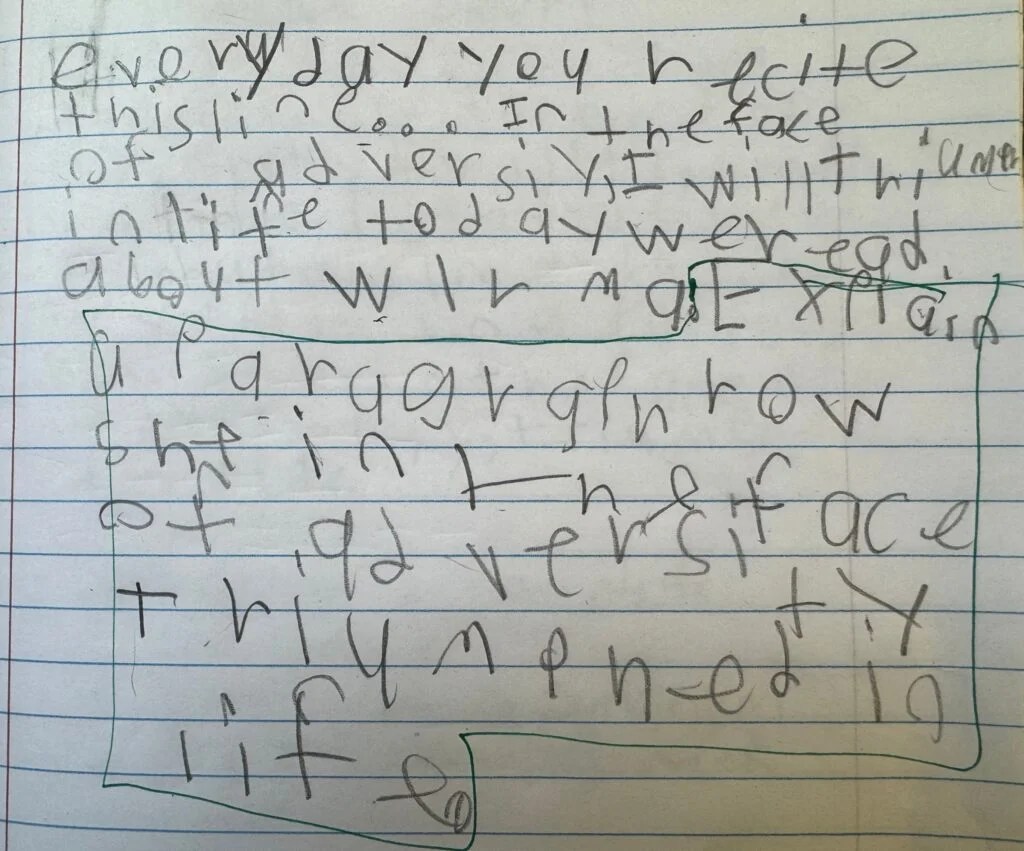 everyday you recite
this line... In the face
of adversiy, I will thriumph
in life today we read
about Wilma. Explain
a Paragraph how
she in the face
of adversity
thriumphed in
life.